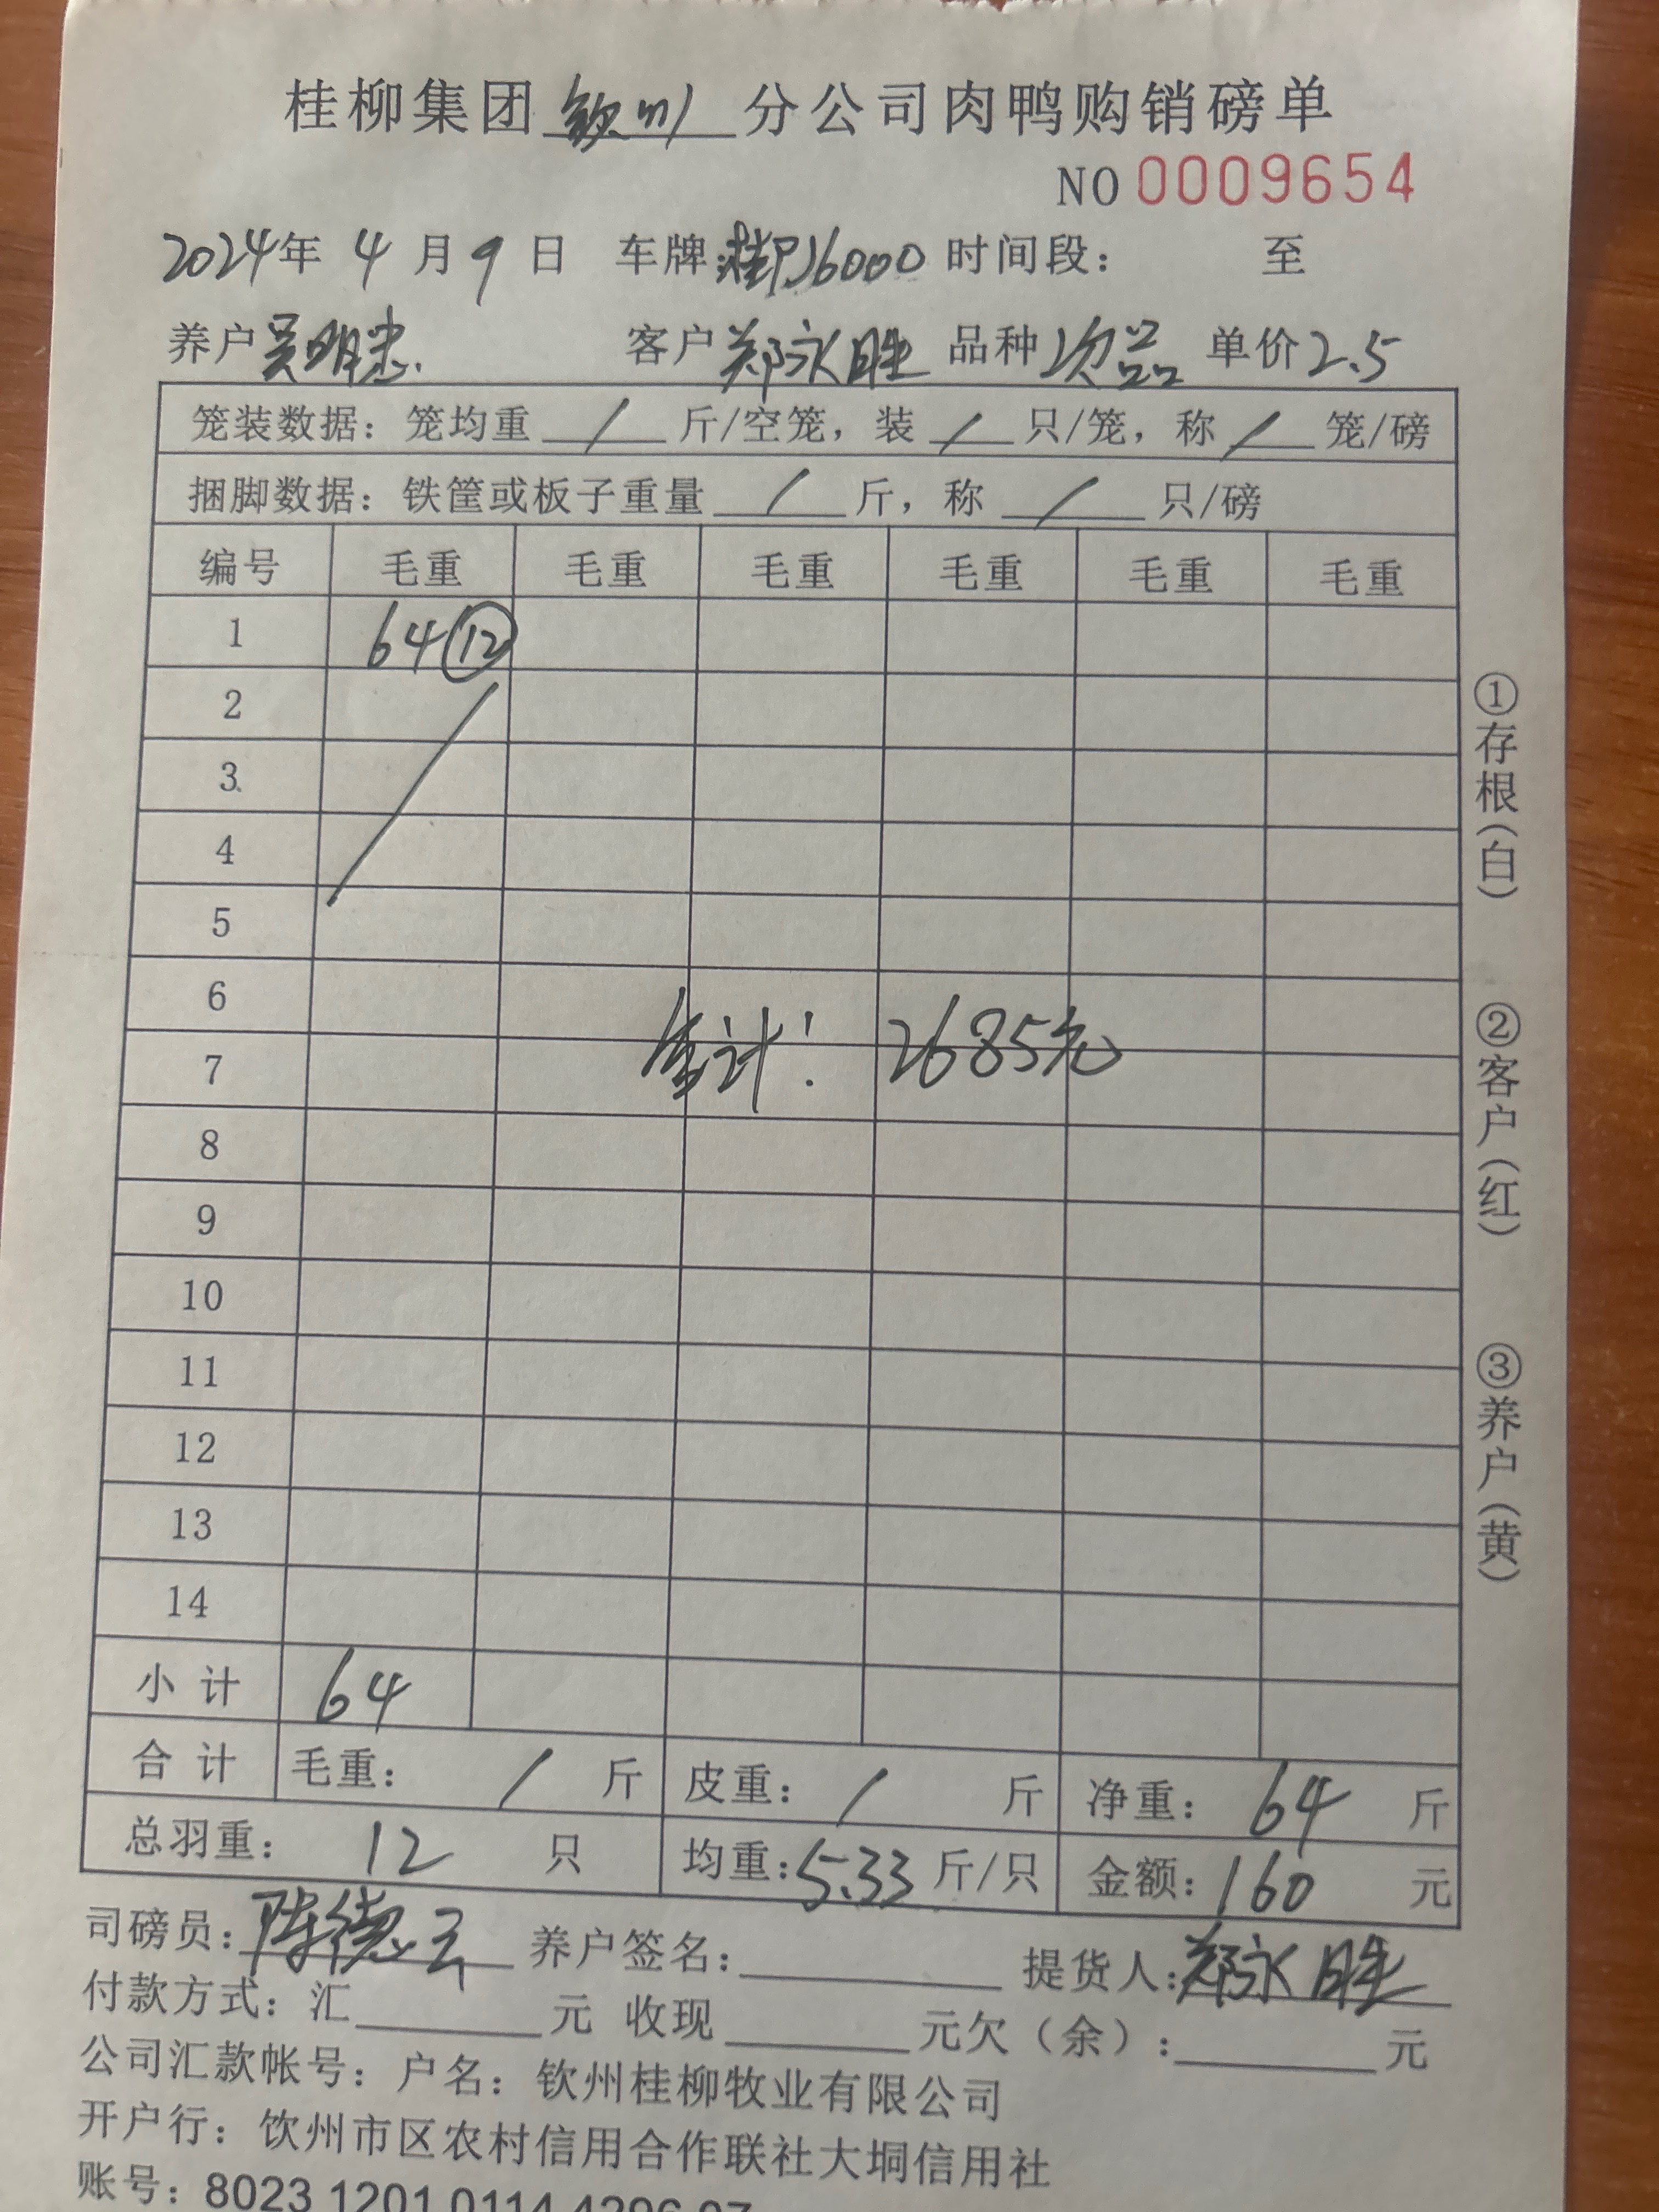 桂柳集团钦州分公司肉鸭购销磅单
NO 0009654
2024年 4 月 9 日 车牌: 6000 时间段: 至
养户 吴明忠 客户 郑永胜 品种 次品 单价 2.5
笼装数据: 笼均重 / 斤/空笼, 装 / 只/笼, 称 / 笼/磅
捆脚数据: 铁筐或板子重量 / 斤, 称 / 只/磅
编号 毛重 毛重 毛重 毛重 毛重 毛重
1 64 ⑫
2
3
4
5
6
7
计: 2685元
8
9
10
11
12
13
14
小计 64
合计 毛重: / 斤 皮重: / 斤 净重: 64 斤
总羽重: 12 只 均重: 5.33 斤/只 金额: 160 元
①存根(白)
②客户(红)
③养户(黄)
司磅员: 陈德云 养户签名: 提货人: 郑永胜
付款方式: 汇 元 收现 元欠(余): 元
公司汇款帐号: 户名: 钦州桂柳牧业有限公司
开户行: 钦州市区农村信用合作联社大垌信用社
账号: 8023 1201 0114